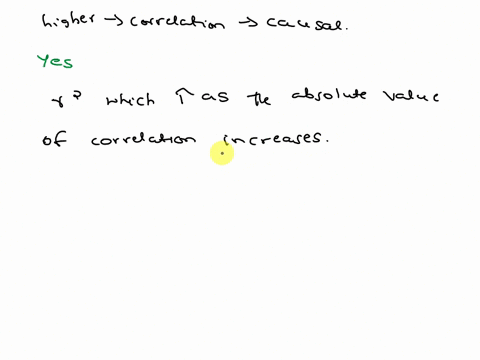 higher → correlation → causal.
Yes
r² which ↑ as the absolute value
of correlation increases.